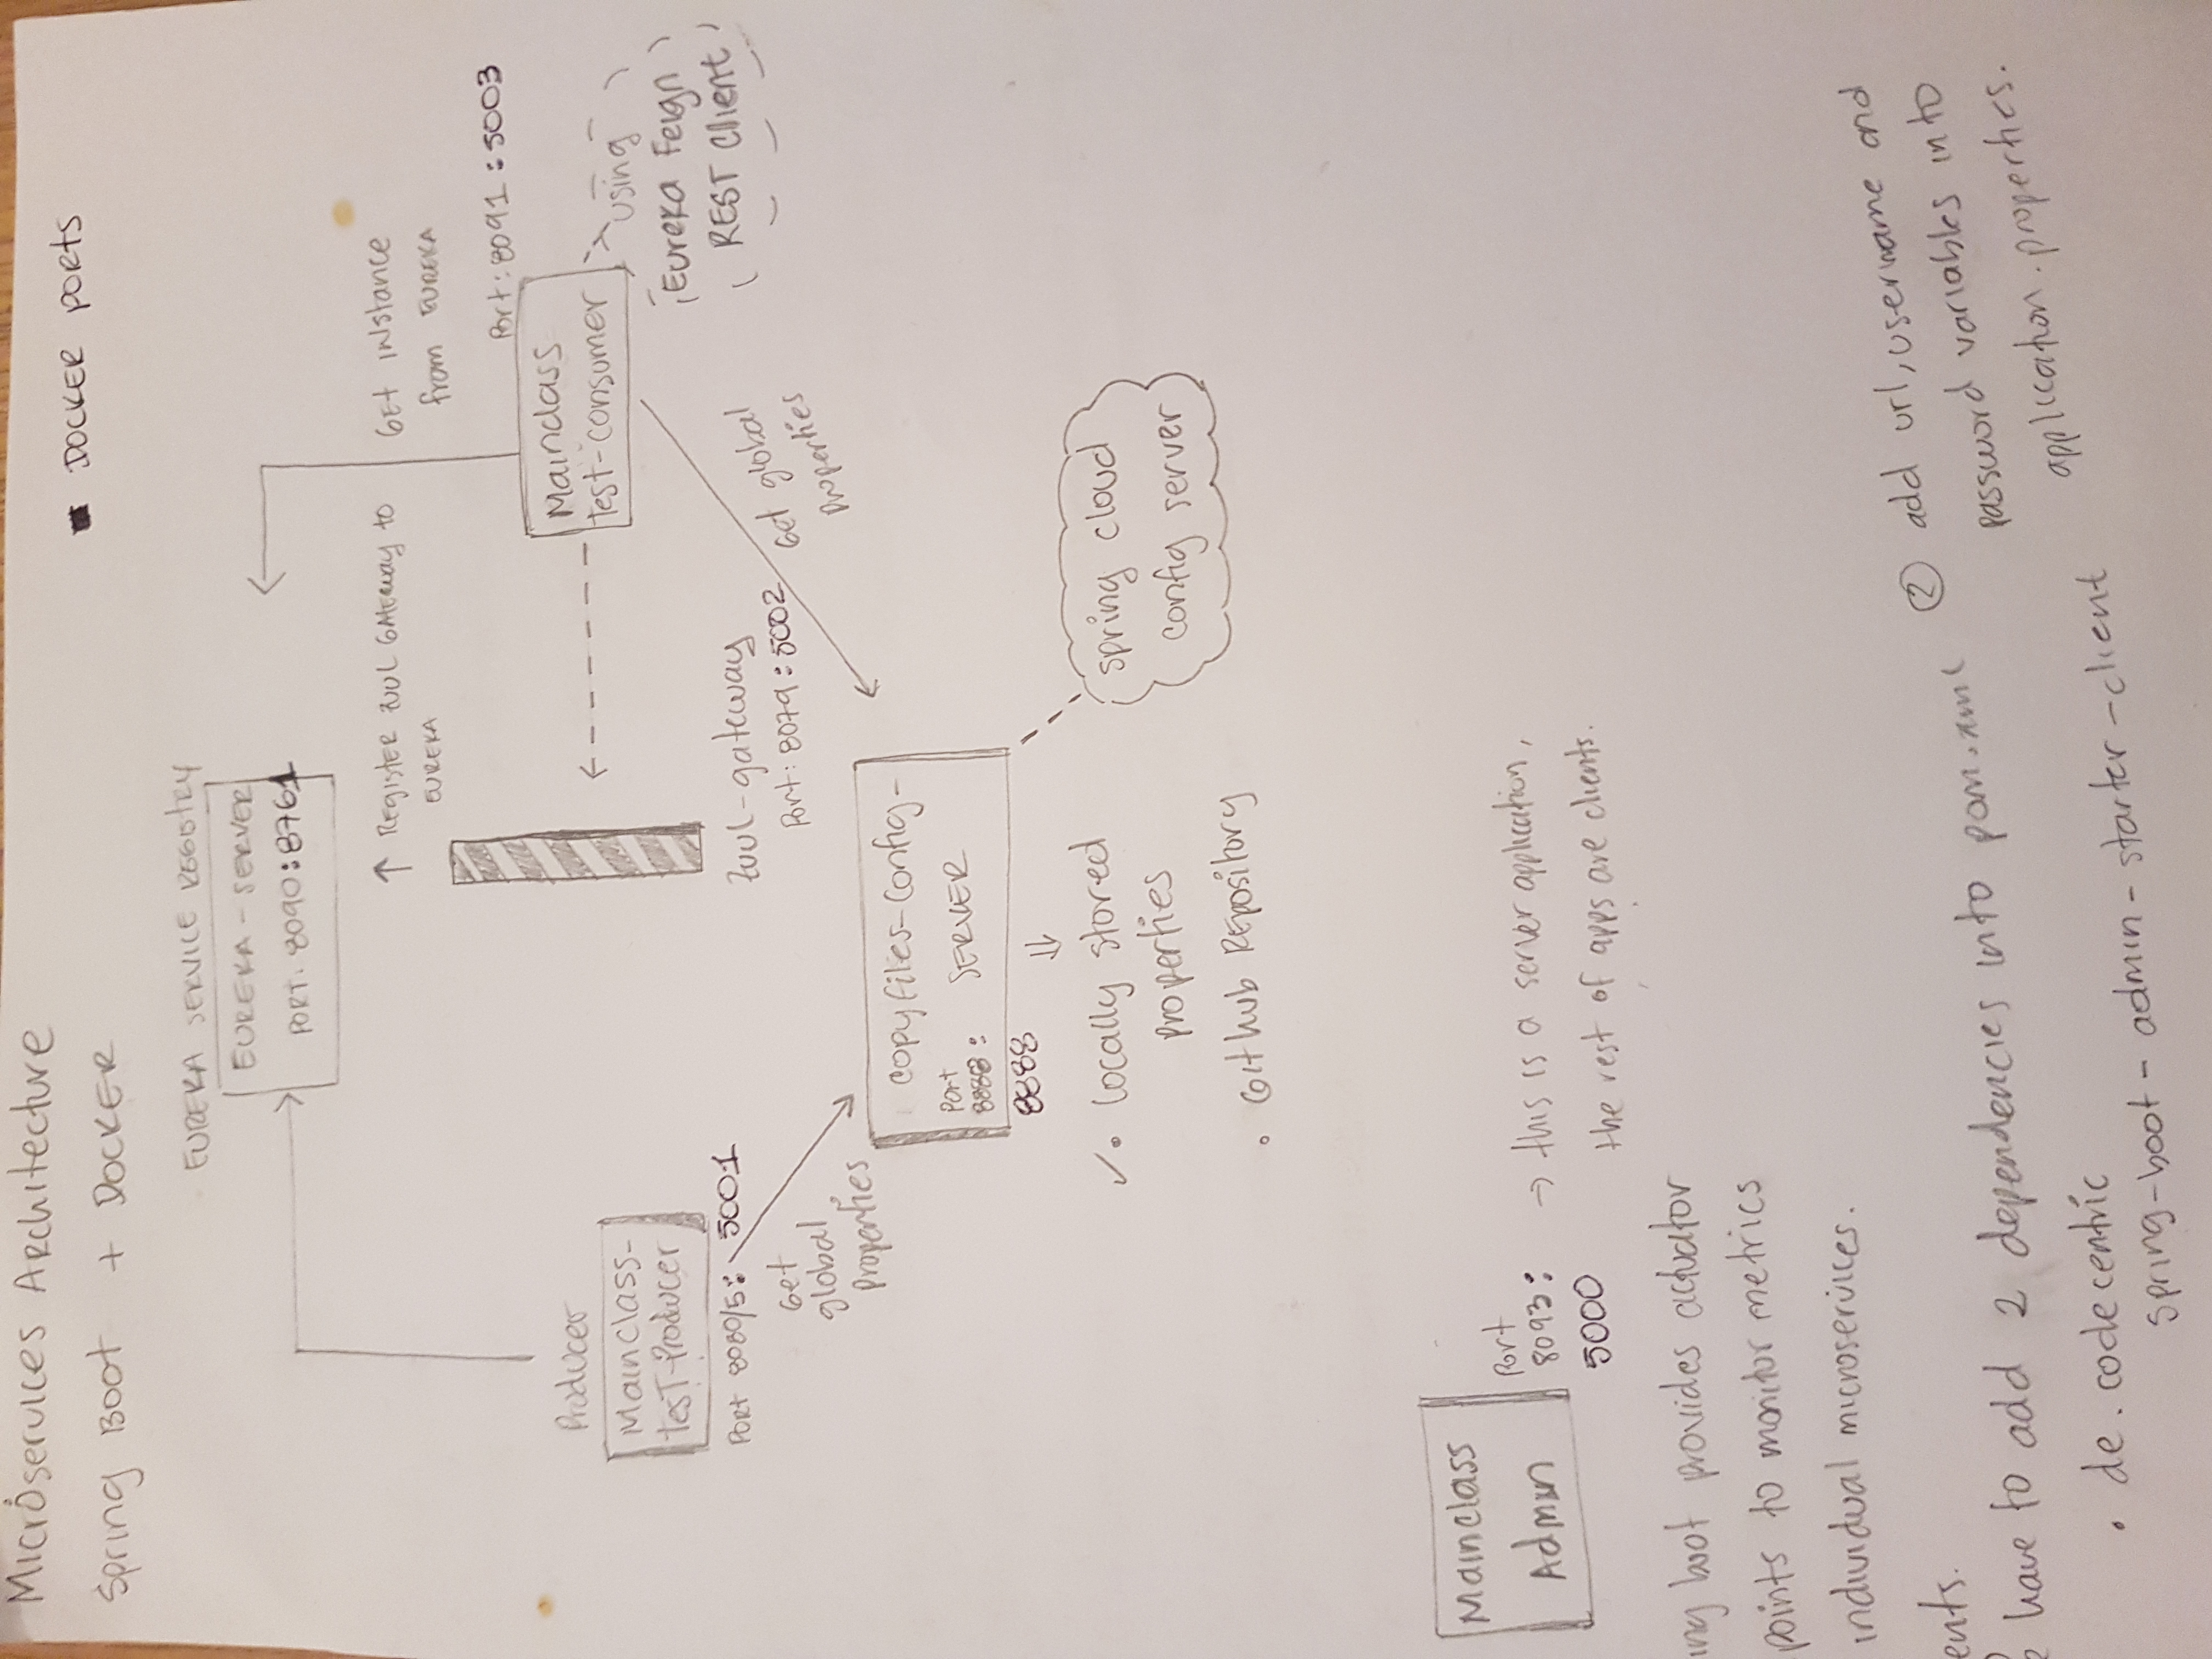 Microservices Architecture
Spring Boot + DOCKER
DOCKER PORTS
EUREKA SERVICE REGISTRY
EUREKA - SERVER
PORT: 8090:8761
REGISTER ZUUL GATEWAY to
EUREKA
GET INSTANCE
from EUREKA
Port: 8091 : 5003
Mainclass
test-consumer
using
Eureka Feign
REST Client
Producer
Mainclass-
tesT-Producer
Port 8080/5: 5001
Get
global
Properties
Zuul-gateway
Port: 8079 : 5002
Get global
Properties
copyfiles-config-
SERVER
Port
8888 :
8888
✓• locally stored
properties
• GitHub Repository
spring cloud
config server
Mainclass
Admin
Port
8093:
5000
→ this is a server application,
the rest of apps are clients.
ing boot provides actuator
points to monitor metrics
individual microservices.
ents.
have to add 2 dependencies into pom.xml
• de.codecentric
spring-boot-admin-starter-client
② add url, username and
password variables into
application.properties.